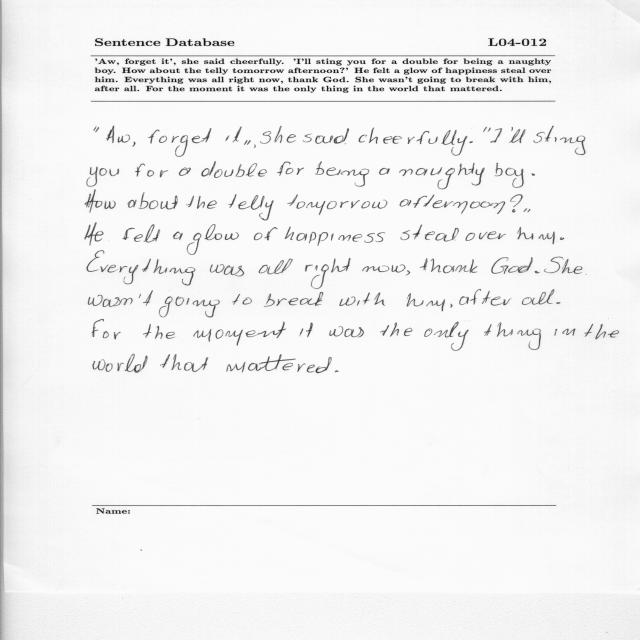 Sentence Database L04-012
'Aw, forget it', she said cheerfully. 'I'll sting you for a double for being a naughty
boy. How about the telly tomorrow afternoon?' He felt a glow of happiness steal over
him. Everything was all right now, thank God. She wasn't going to break with him,
after all. For the moment it was the only thing in the world that mattered.
"Aw, forget it„, she said cheerfully. "I'll sting
you for a double for being a naughty boy.
How about the telly tomorrow afternoon?„
He felt a glow of happiness steal over him.
Everything was all right now, thank God. She
wasn't going to break with him, after all.
For the moment it was the only thing in the
world that mattered.
Name: